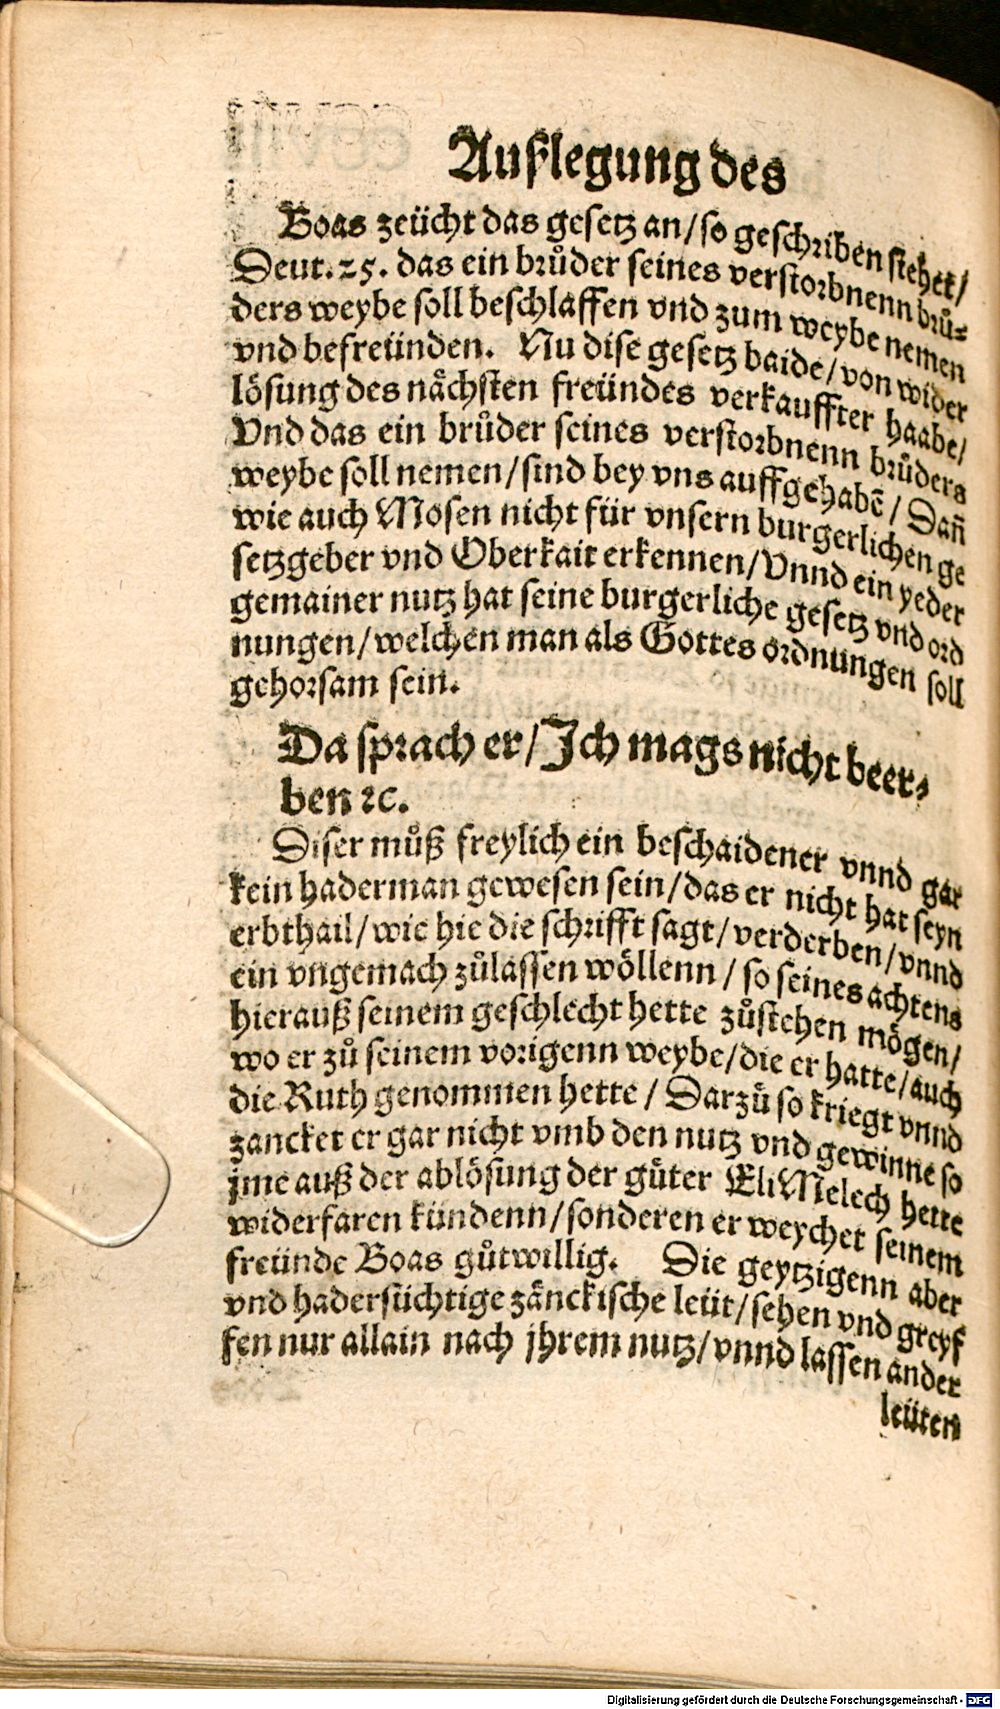 Außlegung des
Boas zeücht das gesetz an/so geschriben stehet/
Deut. 25. das ein brůder seines verstorbnenn brů⸗
ders weybe soll beschlaffen vnd zum weybe nemen
vnd befreünden. Nu dise gesetz baide/von wider
lösung des nächsten freündes verkauffter haabe/
Vnd das ein brůder seines verstorbnenn brůders
weybe soll nemen/sind bey vns auffgehabẽ/Dañ
wie auch Mosen nicht für vnsern burgerlichen ge
setzgeber vnd Oberkait erkennen/Vnnd ein yeder
gemainer nutz hat seine burgerliche gesetz vnd ord
nungen/welchen man als Gottes ordnungen soll
gehorsam sein.
Da sprach er/Ich mags nicht beer⸗
ben ꝛc.
Diser můß freylich ein beschaidener vnnd gar
kein haderman gewesen sein/das er nicht hat seyn
erbthail/wie hie die schrifft sagt/verderben/vnnd
ein vngemach zůlassen wöllenn/so seines achtens
hierauß seinem geschlecht hette zůstehen mögen/
wo er zů seinem vorigenn weybe/die er hatte/auch
die Ruth genommen hette/Darzů so kriegt vnnd
zancket er gar nicht vmb den nutz vnd gewinne so
jme auß der ablösung der güter Eli Melech hette
widerfaren kündenn/sonderen er weychet seinem
freünde Boas gůtwillig. Die geytzigenn aber
vnd hadersüchtige zänckische leüt/sehen vnd greyf
fen nur allain nach jhrem nutz/vnnd lassen ander
leüten
Digitalisierung gefördert durch die Deutsche Forschungsgemeinschaft - DFG